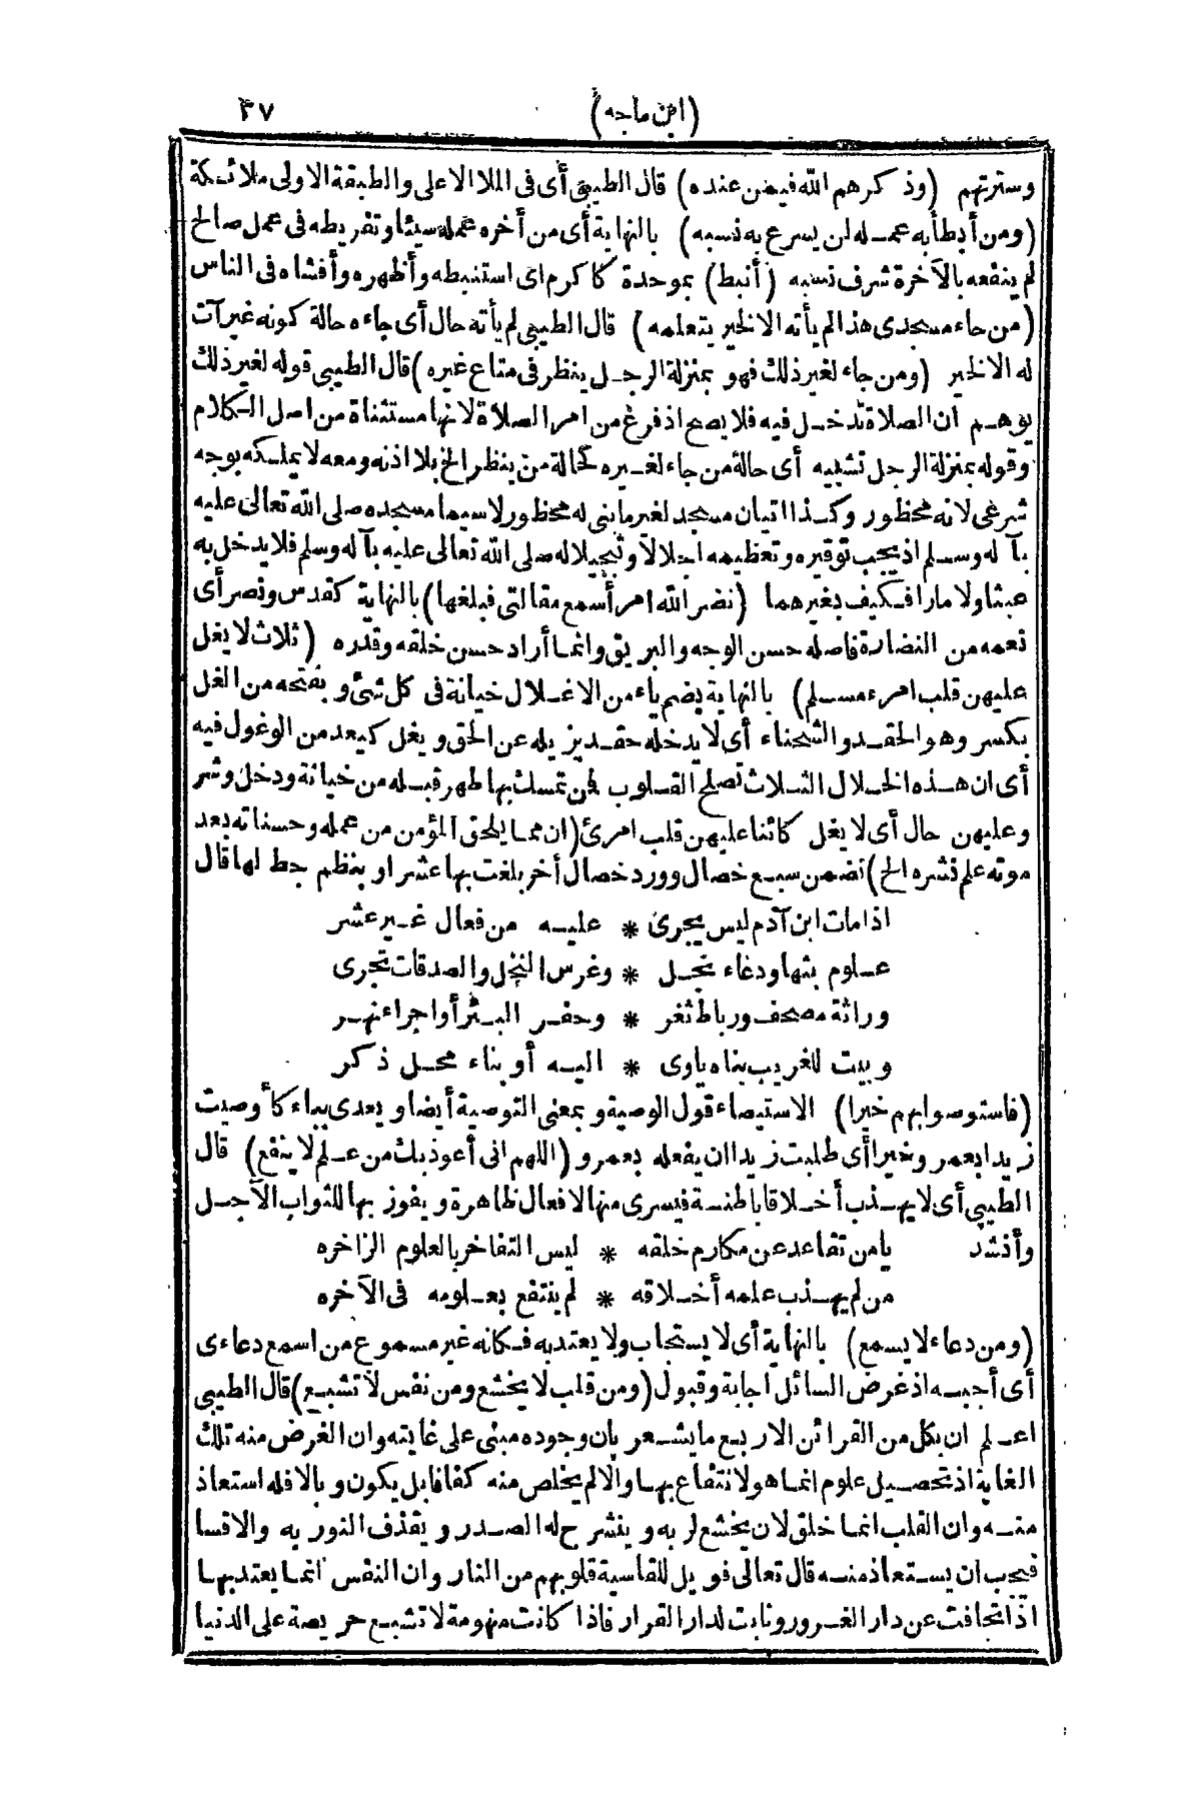 (ابن ماجه) ٣٧
وسترتهم (وذكرهم الله فيمن عنده) قال الطيبي أى فى الملا الاعلى والطبقة الاولى ملائكة
(ومن أبطأ به عمله لن يسرع به نسبه) بالنهاية أى من أخره عمله سيئا وتفريطه فى عمل صالح
لم ينفعه بالآخرة شرف نسبه (أنبط) بموحدة كاكرم اى استنبطه وأظهره وأفشاه فى الناس
(من جاء مسجدى هذا لم يأته الا لخير يتعلمه) قال الطيبى لم يأته حال أى جاءه حالة كونه غير آت
له الا لخير (ومن جاء لغير ذلك فهو بمنزلة الرجل ينظر فى متاع غيره) قال الطيبى قوله لغير ذلك
يوهم ان الصلاة تدخل فيه فلا يصح اذ فرغ من امر الصلاة لانها مستثناة من اصل الكلام
وقوله بمنزلة الرجل تشبيه أى حالة من جاء لغيره كحالة من ينظر الخ بلا اذنه ومعه لا يملكه بوجه
شرعى لانه محظور وكذا اتيان مسجد لغير ما بنى له محظور لاسيما مسجده صلى الله تعالى عليه
بآله وسلم اذ يجب توقيره وتعظيمه اجلالا وتبجيلا له صلى الله تعالى عليه بآله وسلم فلا يدخل به
عبثا ولا مارا فكيف بغيرهما (نضر الله امرأ سمع مقالتى فبلغها) بالنهاية كقدس ونصر أى
نعمه من النضارة فاصله حسن الوجه والبريق وانما أراد حسن خلقه وقدره (ثلاث لا يغل
عليهن قلب امرء مسلم) بالنهاية بضم ياء من الاغلال خيانة فى كل شئ وبفتحه من الغل
بكسر وهو الحقد والشحناء أى لا يدخله حقد يزيله عن الحق ويغل كيعد من الوغول فيه
أى ان هذه الخلال الثلاث تصلح القلوب فمن تمسك بها طهر قبله من خيانة ودخل وشر
وعليهن حال أى لا يغل كائنا عليهن قلب امرئ (ان مما يلحق المؤمن من عمله وحسناته بعد
موته علم نشره الخ) تضمن سبع خصال وورد خصال أخر بلغت بها عشرا وبنظم جط لها قال
اذا مات ابن آدم ليس يجرى * عليه من فعال غير عشر
علوم بثها ودعاء نجل * وغرس النخل والصدقات تجرى
وراثة مصحف ورباط ثغر * وحفر البئر أو اجراء نهر
وبيت للغريب بناه ياوى * اليه أو بناء محل ذكر
(فاستوصوا بهم خيرا) الاستيصاء قول الوصية وبمعنى التوصية أيضا ويعدى بباء كأوصيت
زيدا بعمر وخيرا أى طلبت زيدا ان يفعله بعمرو (اللهم انى أعوذ بك من علم لا ينفع) قال
الطيبى أى لا يهذب أخلاقا باطنة فيسرى منها الافعال ظاهرة ويفوز بها للثواب الآجل
وأنشد يا من تقاعد عن مكارم خلقه * ليس التفاخر بالعلوم الزاخره
من لم يهذب علمه أخلاقه * لم ينتفع بعلومه فى الآخره
(ومن دعاء لا يسمع) بالنهاية أى لا يستجاب ولا يعتد به فكانه غير مسموع من اسمع دعاءى
أى أجبه اذ غرض السائل اجابة وقبول (ومن قلب لا يخشع ومن نفس لا تشبع) قال الطيبى
اعلم ان بكل من القرائن الاربع ما يشعر بان وجوده مبنى على غايته وان الغرض منه تلك
الغاية اذ تحصيل علوم انما هو لانتفاع بها والا لم يخلص منه كفافا بل يكون وبالا فله استعاذ
منه وان القلب انما خلق لان يخشع لربه وينشرح له الصدر ويقذف النور به والا قسا
فيجب ان يستعاذ منه قال تعالى فويل للقاسية قلوبهم من النار وان النفس انما يعتد بها
اذا تجافت عن دار الغرور ونابت لدار القرار فاذا كانت منهومة لا تشبع حريصة على الدنيا